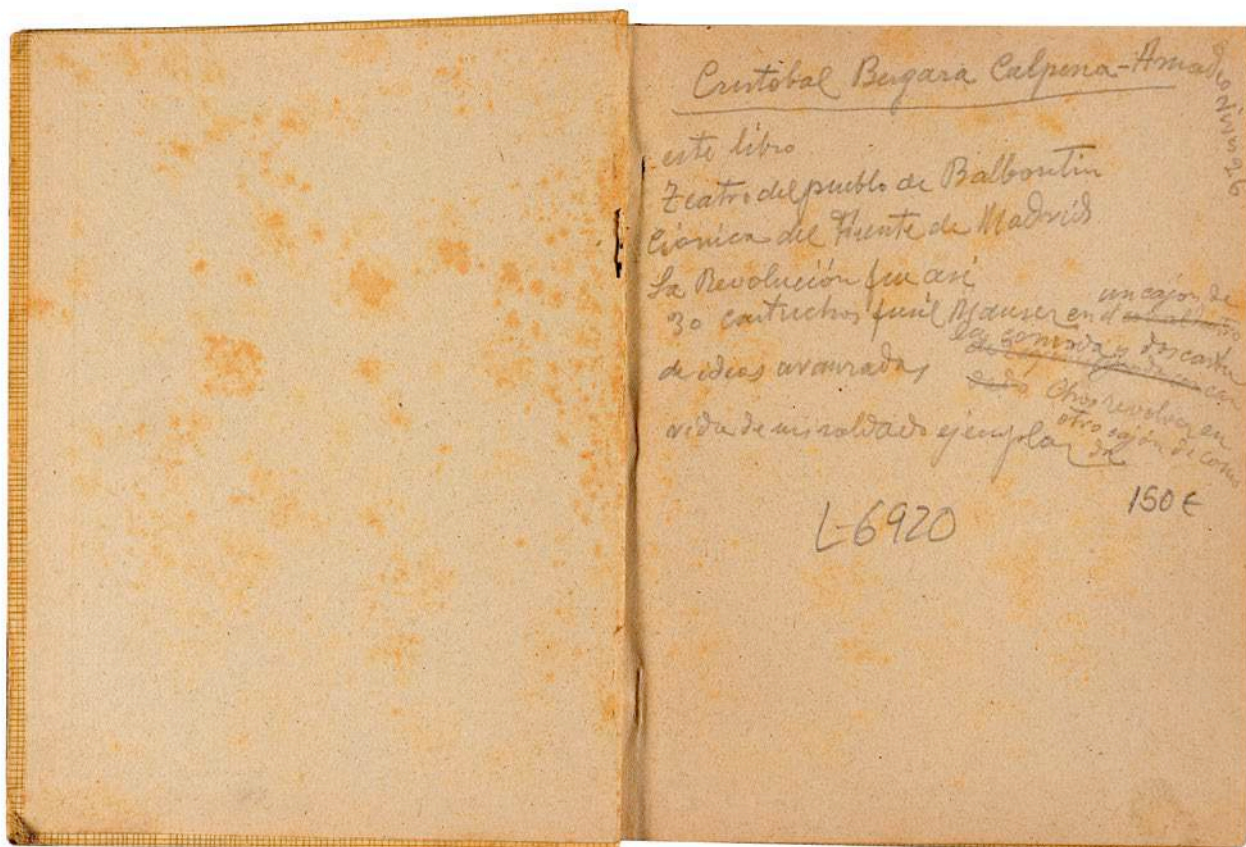 Cristobal Bergara Calpena-Amadeo
este libro
Teatro del pueblo de Balbontin
Cronica del Frente de Madrid
La Revolución fue asi
30 cartuchos fusil Mauser en un cajon de
la comoda y dos
de ideas avanzadas
otros revolver en
otro cajón de
vida de un soldado ejemplar
150 €
L-6920